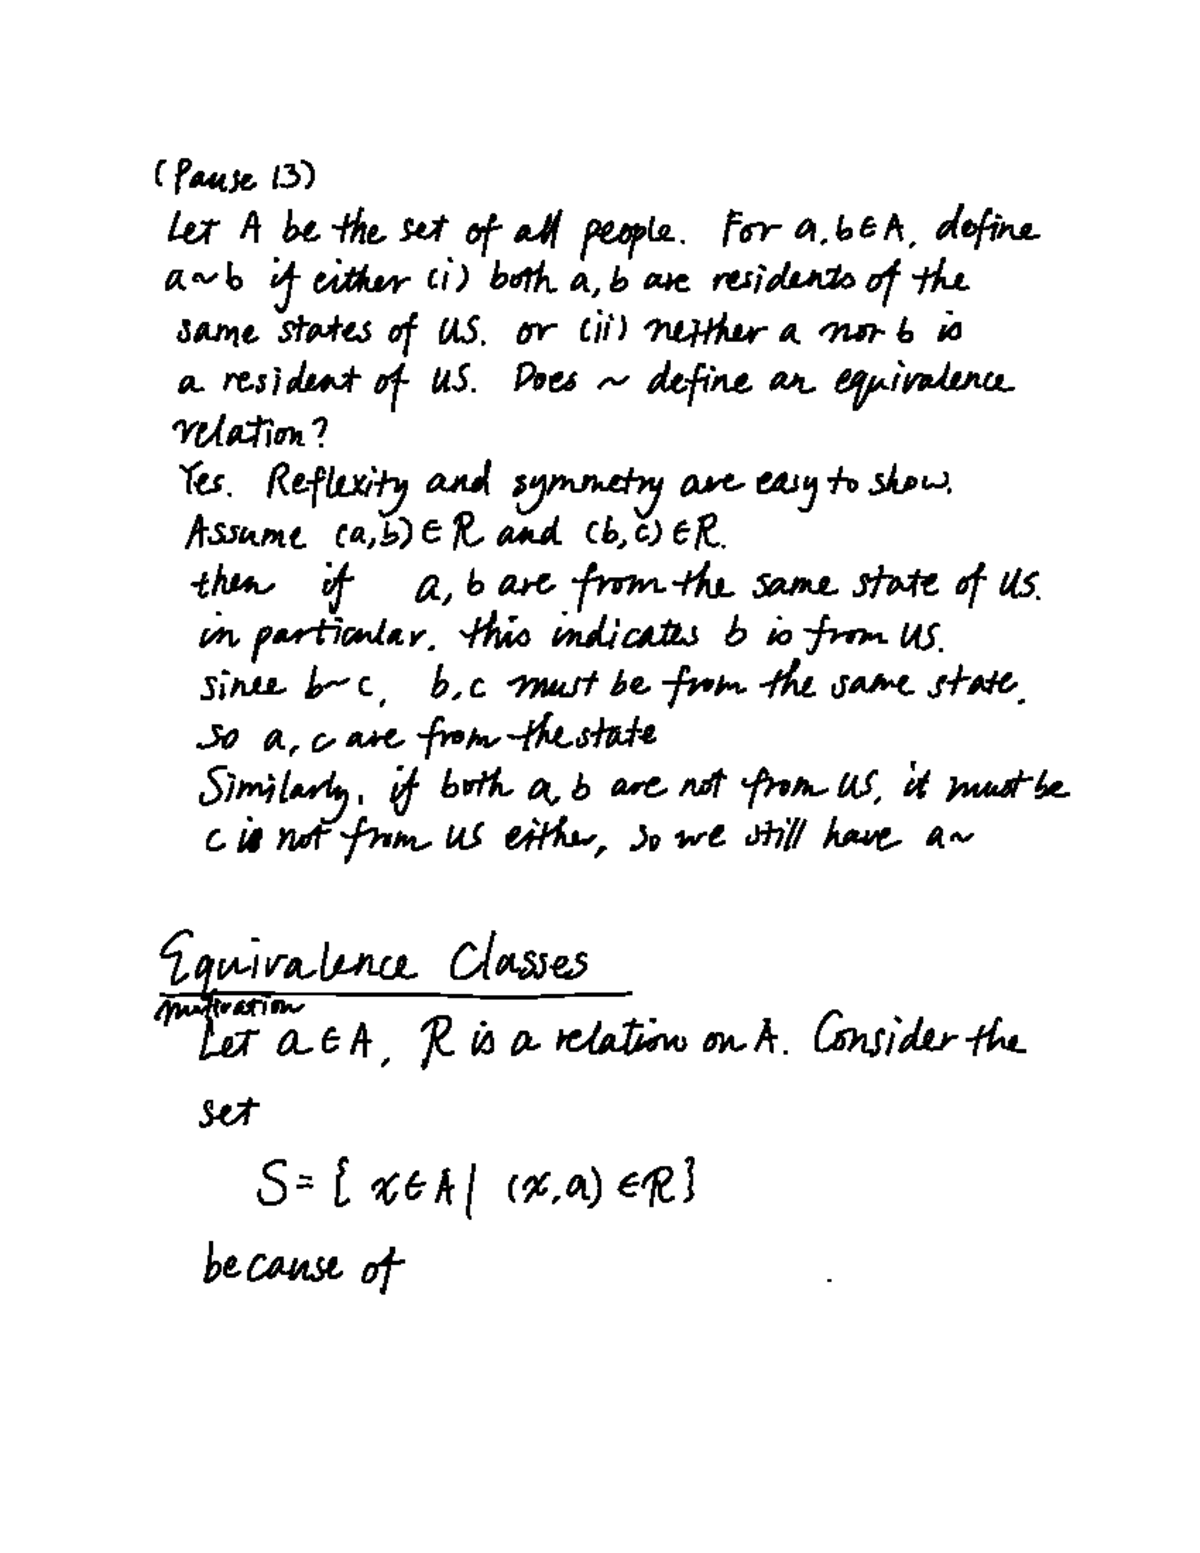 (Pause 13)
Let A be the set of all people. For a, b ∈ A, define
a ~ b if either (i) both a, b are residents of the
same states of US. or (ii) neither a nor b is
a resident of US. Does ~ define an equivalence
relation?
Yes. Reflexity and symmetry are easy to show.
Assume (a,b) ∈ R and (b,c) ∈ R.
then if a, b are from the same state of US.
in particular. this indicates b is from US.
since b~c, b,c must be from the same state.
so a, c are from the state
Similarly, if both a, b are not from US, it must be
c is not from US either, so we still have a~
Equivalence Classes
motivation
Let a ∈ A, R is a relation on A. Consider the
set
S = { x ∈ A | (x,a) ∈ R }
because of